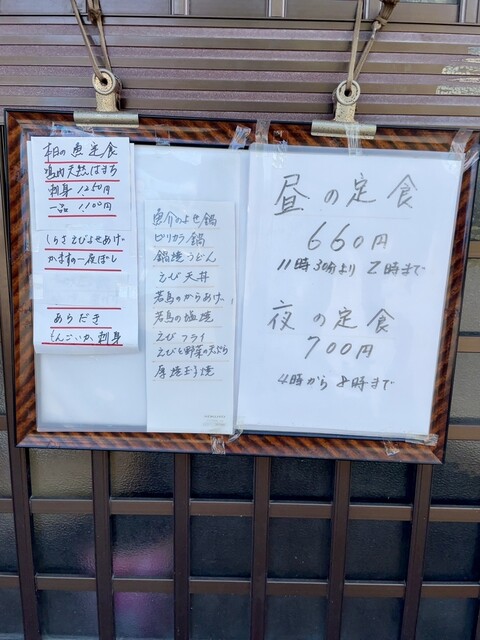 本日の魚定食
鳴門天然はまち
刺身 1,250円
一品 1,100円
しらさえびよせあげ
かますの一夜ぼし
あらだき
もんごいか刺身
魚介のよせ鍋
ピリカラ鍋
鍋焼うどん
えび天丼
若鳥のからあげ
若鳥の塩焼
えびフライ
えびと野菜の天ぷら
厚焼玉子焼
昼の定食
660円
11時30分より 2時まで
夜の定食
700円
4時から8時まで